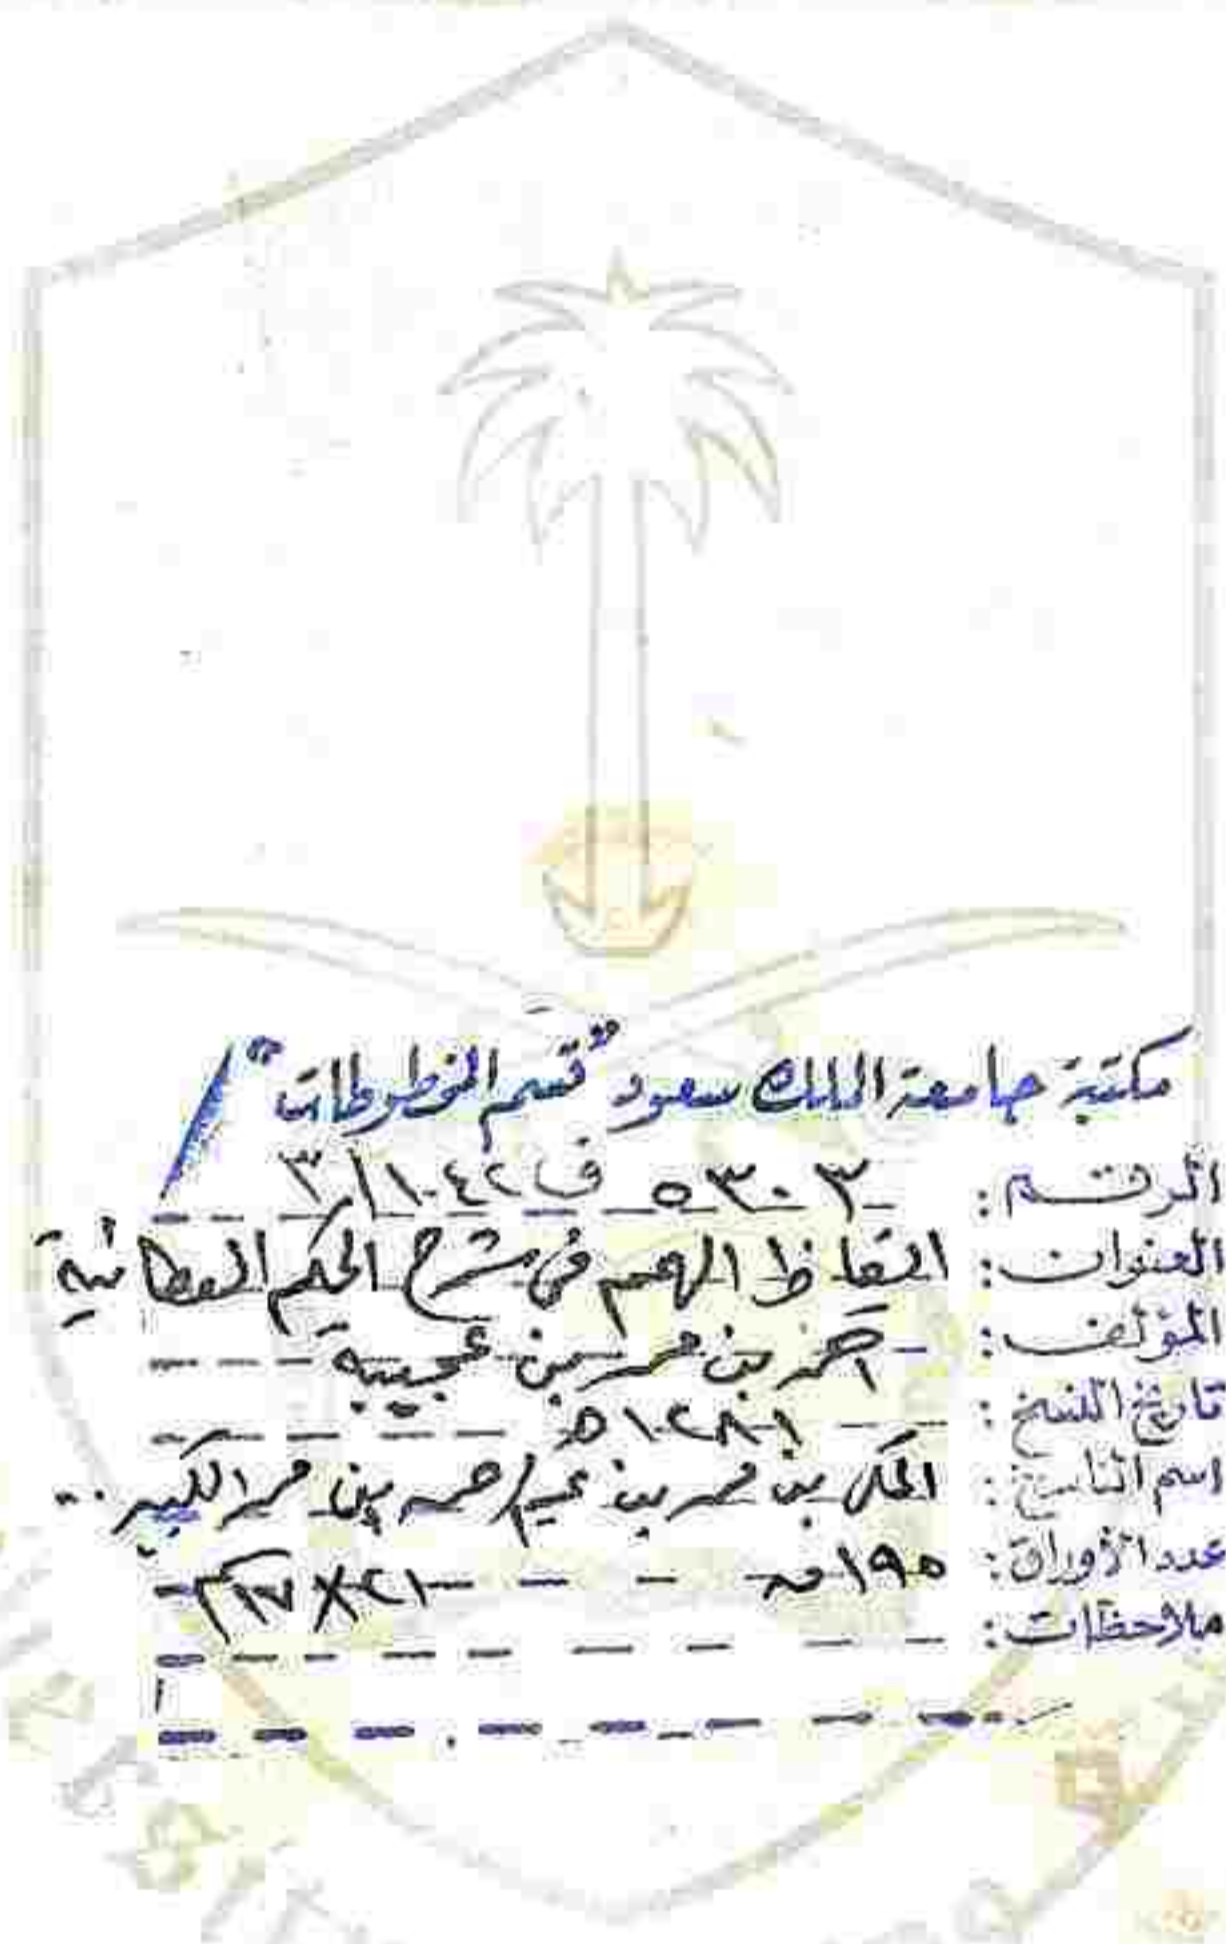 مكتبة جامعة الملك سعود "قسم المخطوطات"
الرقم: ٥٣٠٣ ف ١٠٤٢/٣
العنوان: ايقاظ الهمم في شرح الحكم العطائية
المؤلف: احمد بن محمد بن عجيبة
تاريخ النسخ: ١٢٨١هـ
اسم الناسخ: المكي بن محمد بن بن محمد الكبير..
عدد الأوراق: ١٩٥ ٢١×١٧
ملاحظات: